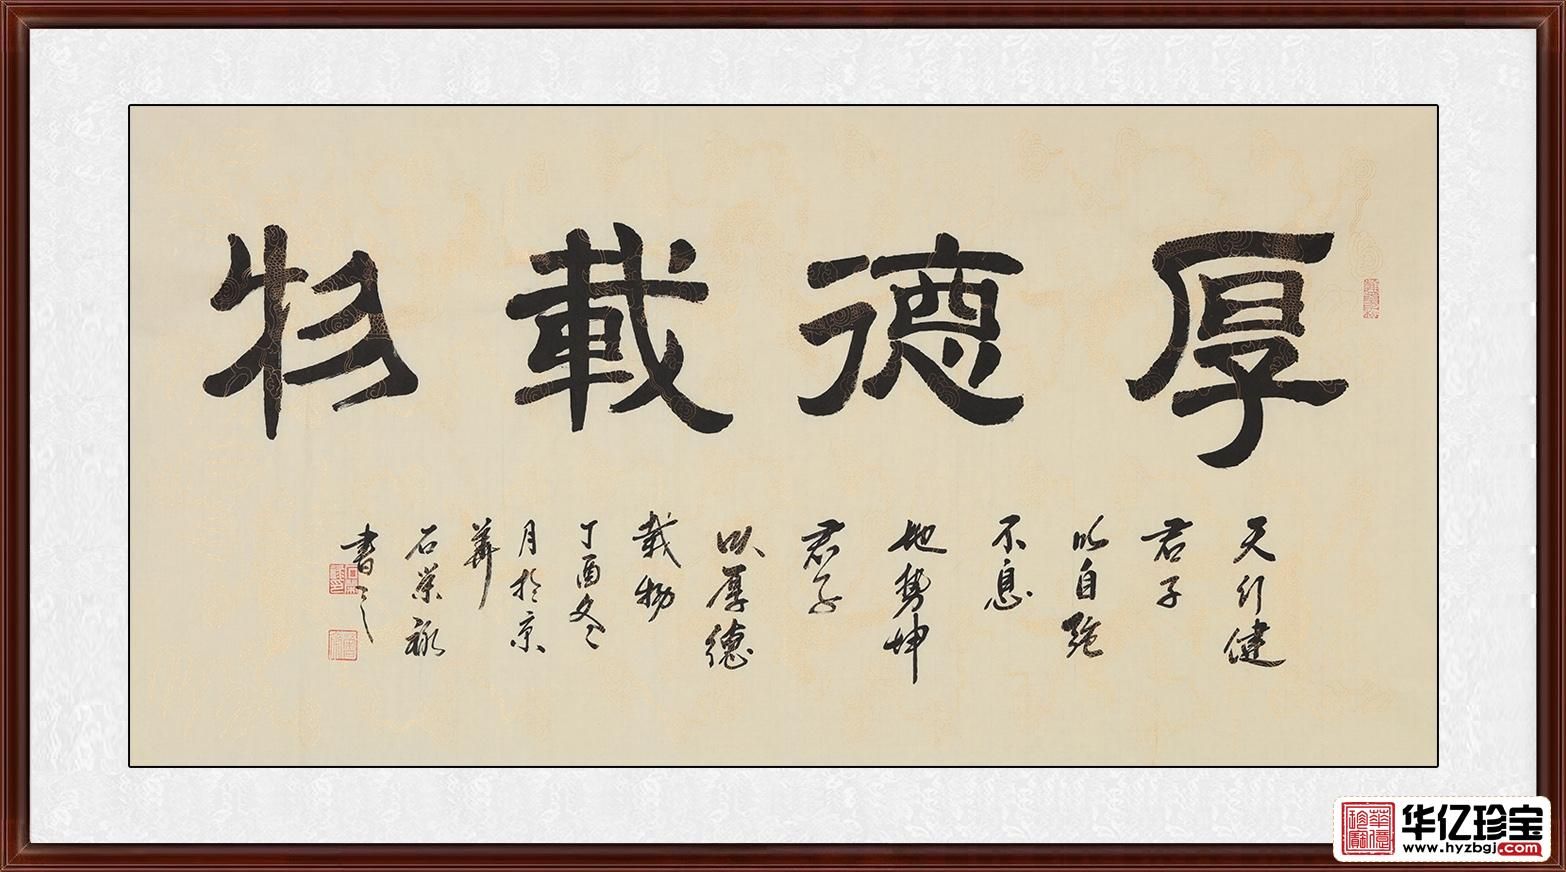 厚德載物
天行健
君子
以自強
不息
地勢坤
君子
以厚德
載物
丁酉冬
月於京
華
石榮禄
書之
华亿珍宝
www.hyzbgj.com